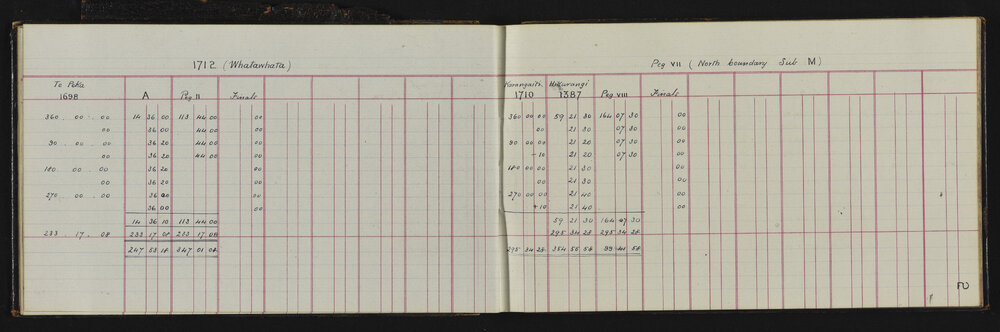 1712 (Whatawhata)
To Peka
1698 A Peg II Finals
360 00 00 14 36 00 113 44 00 00
00 36 00 44 00 00
90 00 00 36 20 44 00 00
00 36 20 44 00 00
180 00 00 36 20 00
00 36 20 00
270 00 00 36 00 00
00 36 00 00
14 36 10 113 44 00
233 17 08 233 17 08 233 17 08
247 53 18 347 01 08
Peg VII (North boundary Sub M)
1710 1387 Peg VIII Finals
360 00 00 59 21 30 164 07 30 00
00 21 30 07 30 00
90 00 00 21 20 07 30 00
-10 21 20 07 30 00
180 00 00 21 30 00
00 21 30 00
270 00 00 21 40 00
+10 21 40 00
59 21 30 164 07 30
295 34 28 295 34 28
295 34 28 354 55 58 99 41 58